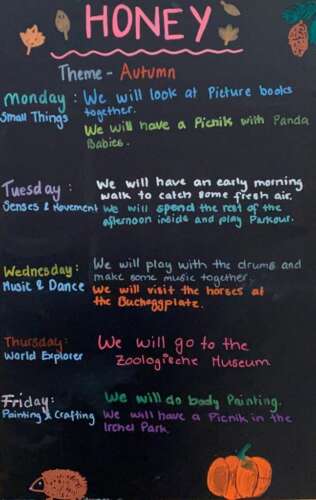 HONEY
Theme - Autumn
Monday : We will look at Picture books
together.
Small Things
We will have a Picnik with Panda
Babies.
Tuesday : We will have an early morning
walk to catch some fresh air.
Senses & Movement We will spend the rest of the
afternoon inside and play Parkour.
Wednesday: We will play with the drums and
Music & Dance make some music together.
We will visit the horses at
the Bucheggplatz.
Thursday: We will go to the
World Explorer Zoologische Museum
Friday: We will do body Painting.
Painting & Crafting We will have a Picnik in the
Irchel Park